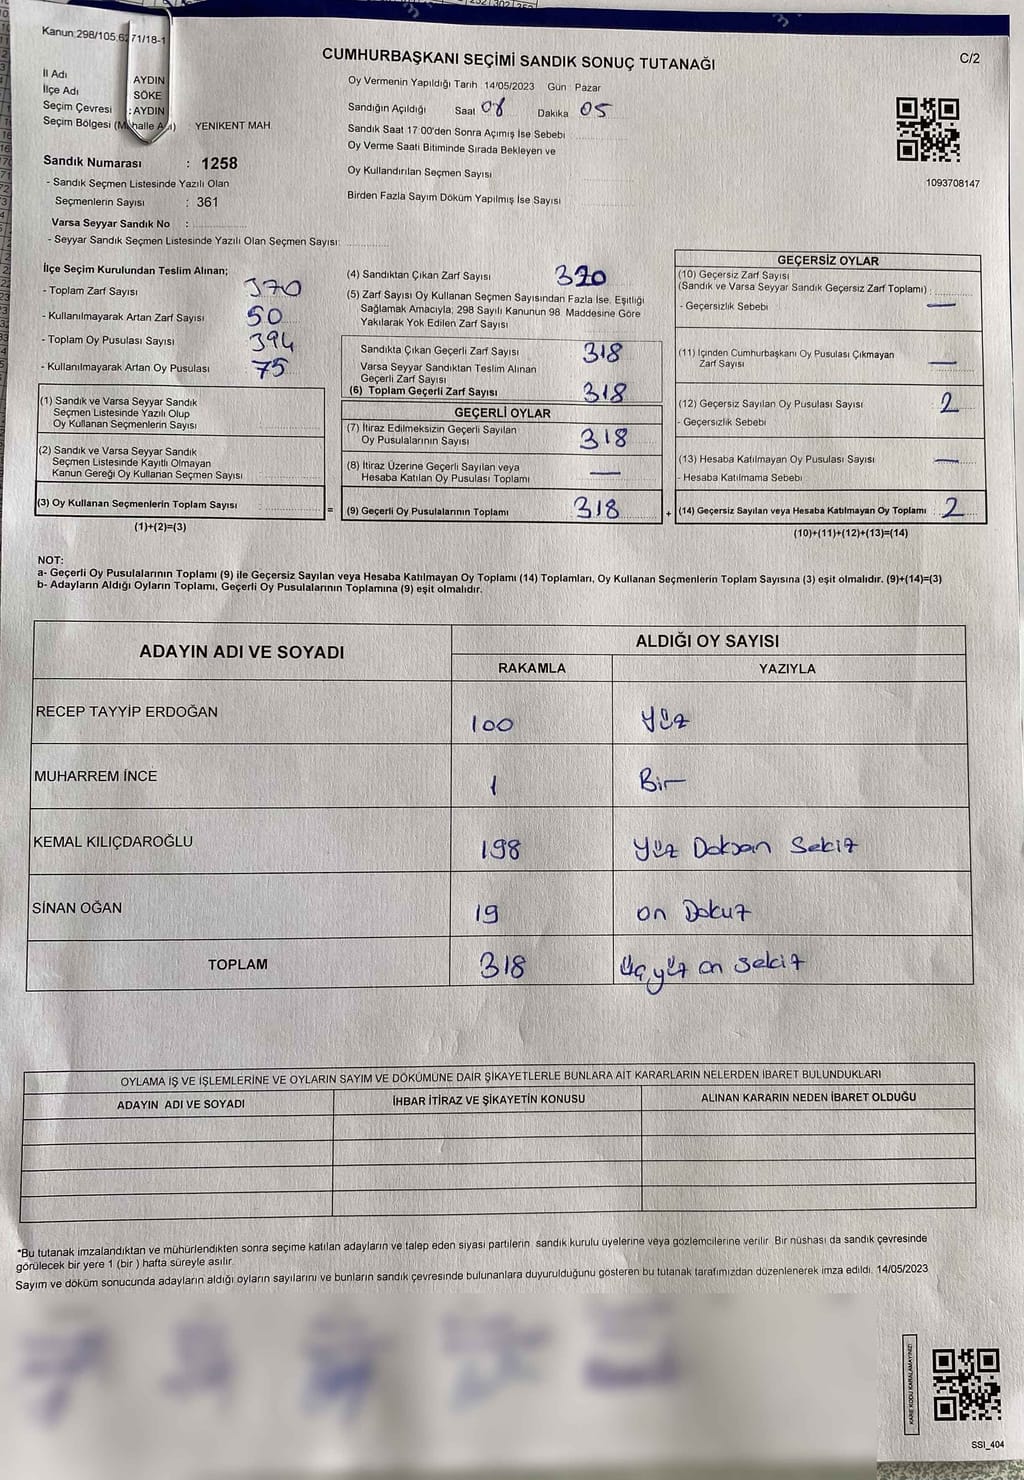 Kanun:298/105,6 71/18-1
CUMHURBAŞKANI SEÇİMİ SANDIK SONUÇ TUTANAĞI
C/2
İl Adı AYDIN
İlçe Adı SÖKE
Seçim Çevresi : AYDIN
Seçim Bölgesi YENİKENT MAH.
Sandık Numarası : 1258
- Sandık Seçmen Listesinde Yazılı Olan
Seçmenlerin Sayısı : 361
Varsa Seyyar Sandık No :
- Seyyar Sandık Seçmen Listesinde Yazılı Olan Seçmen Sayısı:
Oy Vermenin Yapıldığı Tarih 14/05/2023 Gün Pazar
Sandığın Açıldığı Saat 08 Dakika 05
Sandık Saat 17 00'den Sonra Açımış İse Sebebi
Oy Verme Saati Bitiminde Sırada Bekleyen ve
Oy Kullandırılan Seçmen Sayısı
Birden Fazla Sayım Döküm Yapılmış İse Sayısı
1093708147
İlçe Seçim Kurulundan Teslim Alınan;
- Toplam Zarf Sayısı 370
- Kullanılmayarak Artan Zarf Sayısı 50
- Toplam Oy Pusulası Sayısı 394
- Kullanılmayarak Artan Oy Pusulası 75
(1) Sandık ve Varsa Seyyar Sandık
Seçmen Listesinde Yazılı Olup
Oy Kullanan Seçmenlerin Sayısı
(2) Sandık ve Varsa Seyyar Sandık
Seçmen Listesinde Kayıtlı Olmayan
Kanun Gereği Oy Kullanan Seçmen Sayısı
(3) Oy Kullanan Seçmenlerin Toplam Sayısı
(1)+(2)=(3)
=
(4) Sandıktan Çıkan Zarf Sayısı 320
(5) Zarf Sayısı Oy Kullanan Seçmen Sayısından Fazla İse, Eşitliği
Sağlamak Amacıyla; 298 Sayılı Kanunun 98 Maddesine Göre
Yakılarak Yok Edilen Zarf Sayısı
Sandıkta Çıkan Geçerli Zarf Sayısı 318
Varsa Seyyar Sandıktan Teslim Alınan
Geçerli Zarf Sayısı
(6) Toplam Geçerli Zarf Sayısı 318
GEÇERLİ OYLAR
(7) İtiraz Edilmeksizin Geçerli Sayılan
Oy Pusulalarının Sayısı 318
(8) İtiraz Üzerine Geçerli Sayılan veya
Hesaba Katılan Oy Pusulası Toplamı —
(9) Geçerli Oy Pusulalarının Toplamı 318
+
GEÇERSİZ OYLAR
(10) Geçersiz Zarf Sayısı
(Sandık ve Varsa Seyyar Sandık Geçersiz Zarf Toplamı) —
- Geçersizlik Sebebi
(11) İçinden Cumhurbaşkanı Oy Pusulası Çıkmayan
Zarf Sayısı —
(12) Geçersiz Sayılan Oy Pusulası Sayısı 2
- Geçersizlik Sebebi
(13) Hesaba Katılmayan Oy Pusulası Sayısı —
- Hesaba Katılmama Sebebi
(14) Geçersiz Sayılan veya Hesaba Katılmayan Oy Toplamı : 2
(10)+(11)+(12)+(13)=(14)
NOT:
a- Geçerli Oy Pusulalarının Toplamı (9) ile Geçersiz Sayılan veya Hesaba Katılmayan Oy Toplamı (14) Toplamları, Oy Kullanan Seçmenlerin Toplam Sayısına (3) eşit olmalıdır. (9)+(14)=(3)
b- Adayların Aldığı Oyların Toplamı, Geçerli Oy Pusulalarının Toplamına (9) eşit olmalıdır.
ADAYIN ADI VE SOYADI ALDIĞI OY SAYISI
RAKAMLA YAZIYLA
RECEP TAYYİP ERDOĞAN 100 Yüz
MUHARREM İNCE 1 Bir
KEMAL KILIÇDAROĞLU 198 Yüz Doksan Sekiz
SİNAN OĞAN 19 on Dokuz
TOPLAM 318 Üçyüz on sekiz
OYLAMA İŞ VE İŞLEMLERİNE VE OYLARIN SAYIM VE DÖKÜMÜNE DAİR ŞİKAYETLERLE BUNLARA AİT KARARLARIN NELERDEN İBARET BULUNDUKLARI
ADAYIN ADI VE SOYADI İHBAR İTİRAZ VE ŞİKAYETİN KONUSU ALINAN KARARIN NEDEN İBARET OLDUĞU
*Bu tutanak imzalandıktan ve mühürlendikten sonra seçime katılan adayların ve talep eden siyasi partilerin sandık kurulu üyelerine veya gözlemcilerine verilir. Bir nüshası da sandık çevresinde
görülecek bir yere 1 (bir ) hafta süreyle asılır.
Sayım ve döküm sonucunda adayların aldığı oyların sayılarını ve bunların sandık çevresinde bulunanlara duyurulduğunu gösteren bu tutanak tarafımızdan düzenlenerek imza edildi. 14/05/2023
KARE KODU KARALAMAYINIZ!
SSI_404